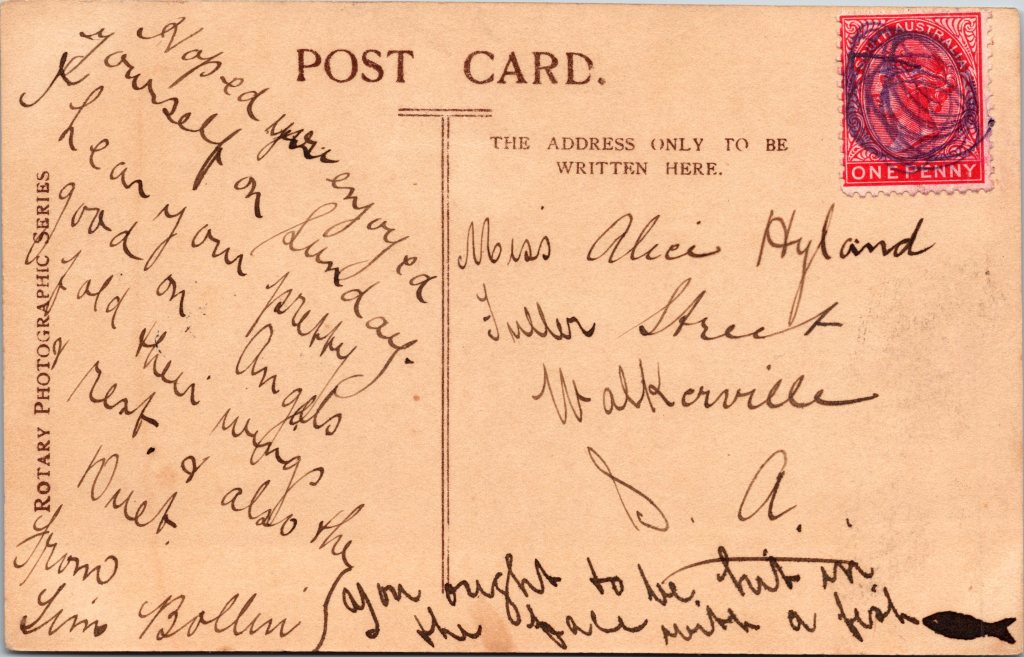 POST CARD.
THE ADDRESS ONLY TO BE
WRITTEN HERE.
ROTARY PHOTOGRAPHIC SERIES
SOUTH AUSTRALIA
ONE PENNY
Hoped you enjoyed
yourself on Sunday.
I hear your pretty
good on Angels
fold their wings
& rest & also the
Duet.
From
Sim Bollin
Miss Alice Hyland
Fuller Street
Walkerville
S. A.
You ought to be hit in
the face with a fish